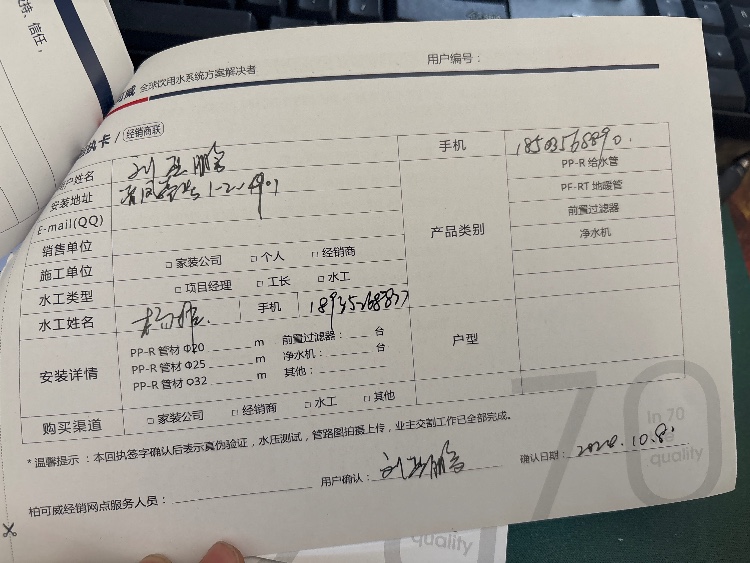 持、信任,
威 全球饮用水系统方案解决者
用户编号：
执卡 / 经销商联
用户姓名 刘 鹏 手机
安装地址 1-2-
E-mail(QQ)
销售单位
施工单位 □ 家装公司 □ 个人 □ 经销商
水工类型 □ 项目经理 □ 工长 □ 水工
水工姓名 杨 手机
产品类别
PP-R 给水管
PF-RT 地暖管
前置过滤器
净水机
安装详情
PP-R 管材 Φ20 m 前置过滤器： 台
PP-R 管材 Φ25 m 净水机： 台
PP-R 管材 Φ32 m 其他：
户型
购买渠道 □ 家装公司 □ 经销商 □ 水工 □ 其他
* 温馨提示 ：本回执签字确认后表示真伪验证，水压测试，管路图拍摄上传，业主交割工作已全部完成。
柏可威经销网点服务人员：
用户确认： 刘 鹏
确认日期： 2020.10.8
70
in 70
quality
quality